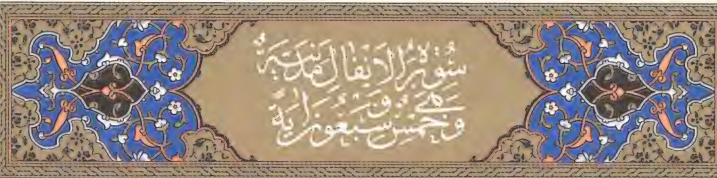 سُورَةُ الْأَنْفَالِ مَدَنِيَّةٌ
وَهِيَ خَمْسٌ وَسَبْعُونَ آيَةً